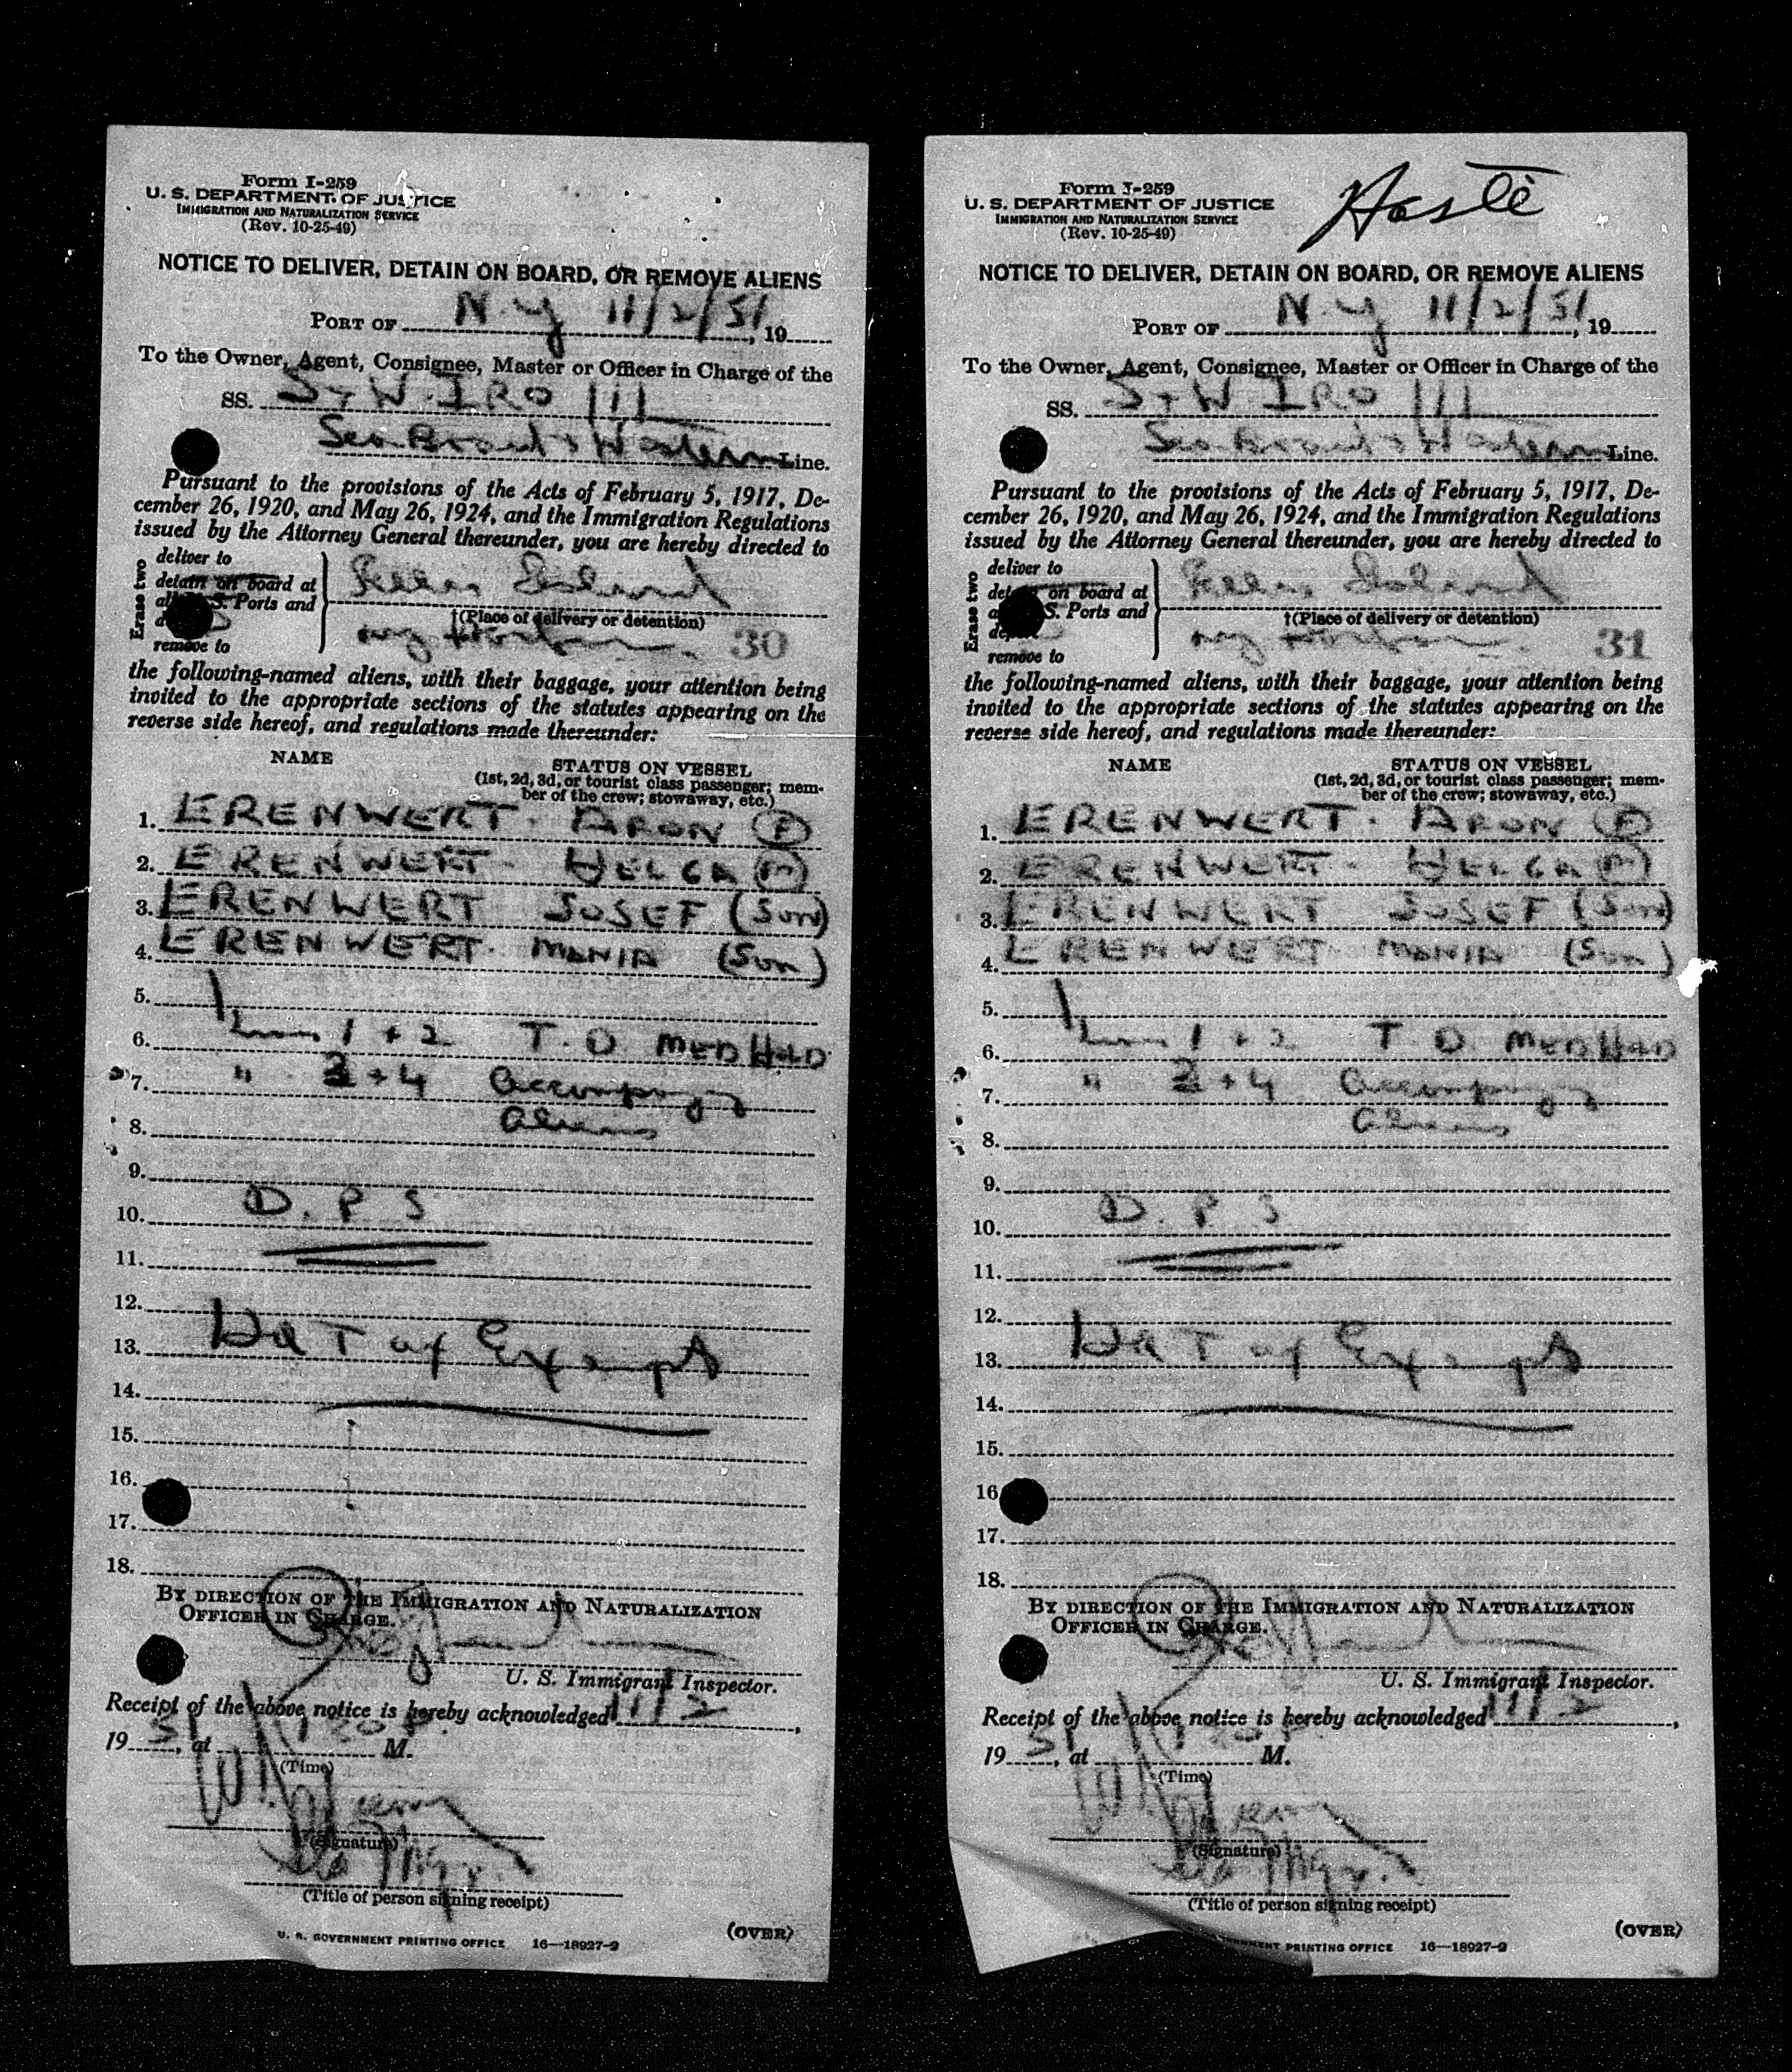 Form I-259
U. S. DEPARTMENT OF JUSTICE
IMMIGRATION AND NATURALIZATION SERVICE
(Rev. 10-25-49)
NOTICE TO DELIVER, DETAIN ON BOARD, OR REMOVE ALIENS
PORT OF N.Y 11/2/51, 19
To the Owner, Agent, Consignee, Master or Officer in Charge of the
SS. S+W. IRO 111
Sea Board + Western Line.
Pursuant to the provisions of the Acts of February 5, 1917, De-
cember 26, 1920, and May 26, 1924, and the Immigration Regulations
issued by the Attorney General thereunder, you are hereby directed to
Erase two
deliver to
detain on board at
S. Ports and
remove to
Ellis Island
†(Place of delivery or detention)
ny Harbor. 30
the following-named aliens, with their baggage, your attention being
invited to the appropriate sections of the statutes appearing on the
reverse side hereof, and regulations made thereunder:
NAME
STATUS ON VESSEL
(1st, 2d, 3d, or tourist class passenger; mem-
ber of the crew; stowaway, etc.)
1. ERENWERT. ARON (F)
2. ERENWERT- HELGA (M)
3. ERENWERT JOSEF (Son)
4. ERENWERT. MANIA (Son)
5.
6. 1 + 2 T.D MED HOLD
7. " 3 + 4 Accompanying
8. Aliens
9.
10. D. P S
11.
12.
13. Ha T ax Exempt
14.
15.
16.
17.
18.
BY DIRECTION OF THE IMMIGRATION AND NATURALIZATION
OFFICER IN CHARGE.
U. S. Immigrant Inspector.
Receipt of the above notice is hereby acknowledged 11/2,
19 51, at M.
(Time)
(Signature)
(Title of person signing receipt)
(OVER)
U. S. GOVERNMENT PRINTING OFFICE 16—18927-2
Form I-259
U. S. DEPARTMENT OF JUSTICE
IMMIGRATION AND NATURALIZATION SERVICE
(Rev. 10-25-49)
NOTICE TO DELIVER, DETAIN ON BOARD, OR REMOVE ALIENS
PORT OF N.Y 11/2/51, 19
To the Owner, Agent, Consignee, Master or Officer in Charge of the
SS. S+W IRO 111
Sea Board + Western Line.
Pursuant to the provisions of the Acts of February 5, 1917, De-
cember 26, 1920, and May 26, 1924, and the Immigration Regulations
issued by the Attorney General thereunder, you are hereby directed to
Erase two
deliver to
on board at
S. Ports and
remove to
Ellis Island
†(Place of delivery or detention)
ny Harbor. 31
the following-named aliens, with their baggage, your attention being
invited to the appropriate sections of the statutes appearing on the
reverse side hereof, and regulations made thereunder:
NAME
STATUS ON VESSEL
(1st, 2d, 3d, or tourist class passenger; mem-
ber of the crew; stowaway, etc.)
1. ERENWERT. ARON (F)
2. ERENWERT- HELGA (M)
3. ERENWERT JOSEF (Son)
4. ERENWERT MANIA (Son)
5.
6. 1 + 2 T D MED HOLD
7. " 3 + 4 Accompanying
8. Aliens
9.
10. D. P S
11.
12.
13. Ha T ax Exempt
14.
15.
16
17.
18.
BY DIRECTION OF THE IMMIGRATION AND NATURALIZATION
OFFICER IN CHARGE.
U. S. Immigrant Inspector.
Receipt of the above notice is hereby acknowledged 11/2,
19 51, at M.
(Time)
(Signature)
(Title of person signing receipt)
(OVER)
PRINTING OFFICE 16—18927-2